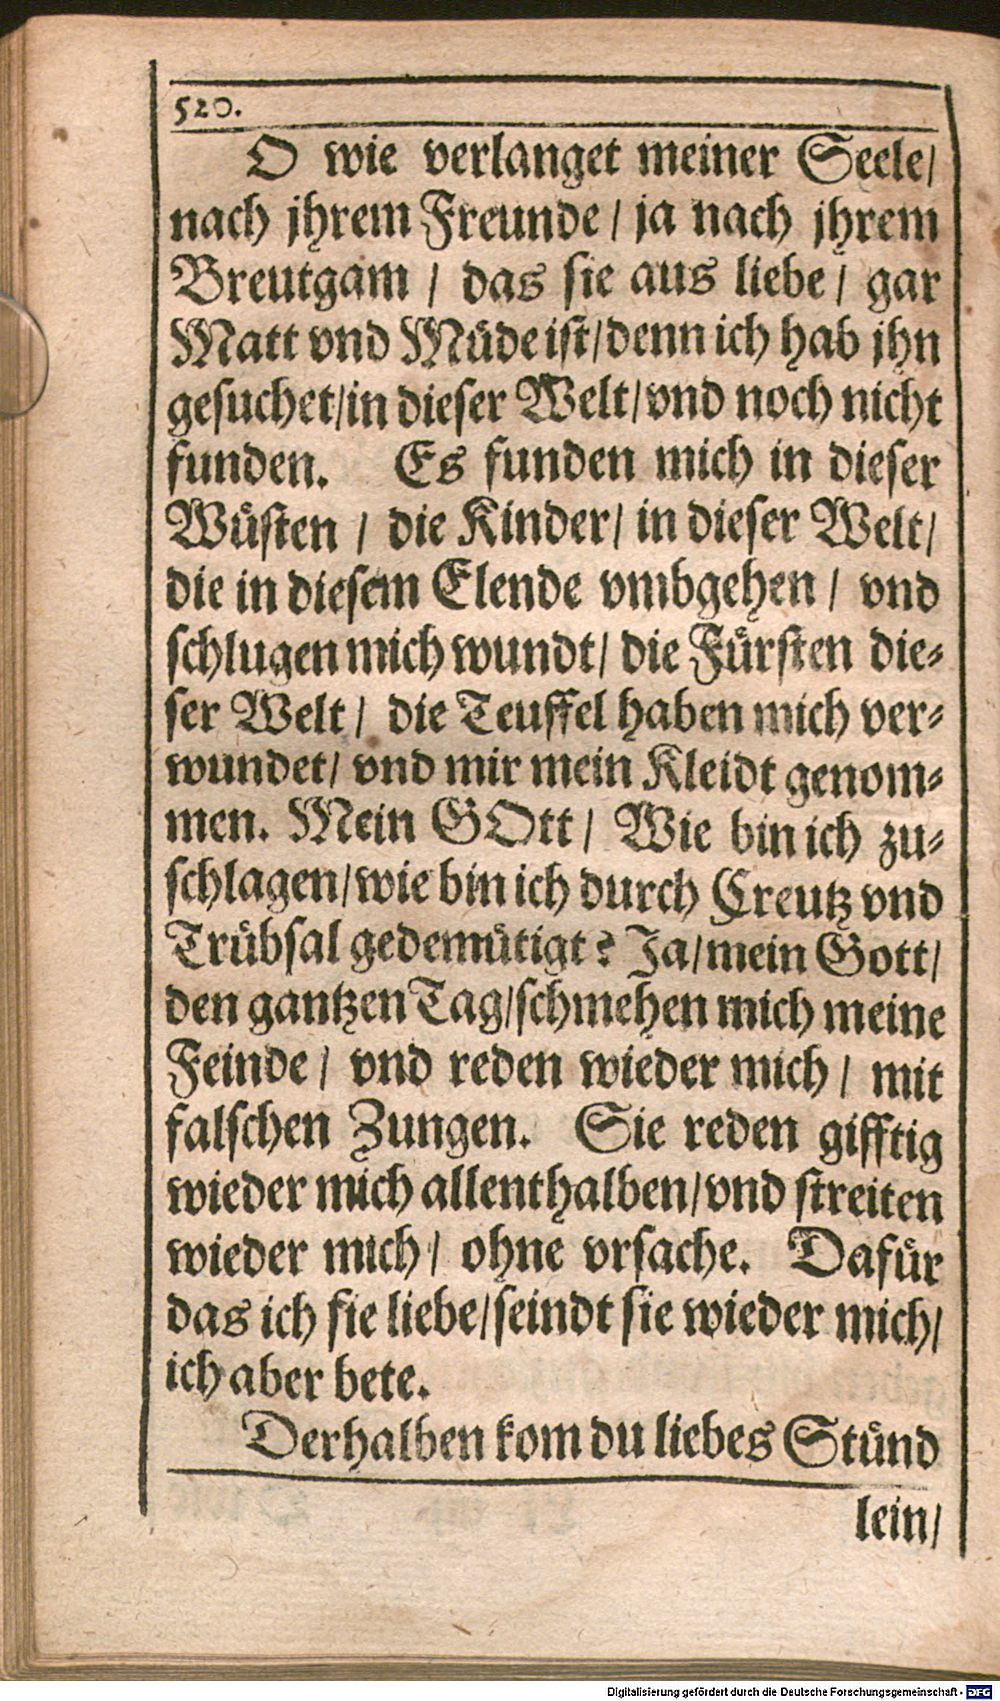 520.
O wie verlanget meiner Seele/
nach jhrem Freunde/ ja nach jhrem
Breutgam / das sie aus liebe/ gar
Matt vnd Müde ist/denn ich hab jhn
gesuchet/in dieser Welt/vnd noch nicht
funden. Es funden mich in dieser
Wüsten / die Kinder/ in dieser Welt/
die in diesem Elende vmbgehen / vnd
schlugen mich wundt/ die Fürsten die-
ser Welt / die Teuffel haben mich ver-
wundet/ vnd mir mein Kleidt genom-
men. Mein GOtt / Wie bin ich zu-
schlagen/wie bin ich durch Creutz vnd
Trübsal gedemütigt? Ja/mein Gott/
den gantzen Tag/schmehen mich meine
Feinde / vnd reden wieder mich / mit
falschen Zungen. Sie reden gifftig
wieder mich allenthalben/vnd streiten
wieder mich/ ohne vrsache. Dafür
das ich sie liebe/seindt sie wieder mich/
ich aber bete.
Derhalben kom du liebes Stünd
lein/
Digitalisierung gefördert durch die Deutsche Forschungsgemeinschaft - DFG